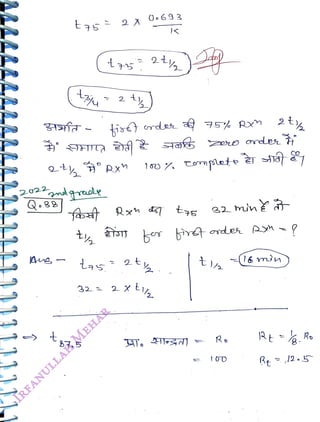 t75 = 2 x 0.693 / K
t75 = 2t1/2
t3/4 = 2 t1/2
अर्थात - first order की 75% Rxn 2t1/2
में समाप्त होती है जबकि zero order में
2t1/2 में Rxn 100% complete हो जाती है।
2022 2nd grade
Q.88 किसी Rxn का t75 32 min है तो
t1/2 होगा for first order Rxn = ?
Ans - t75 = 2t1/2
t1/2 = 16 min
32 = 2 x t1/2
=> t87.5 प्रा. सान्द्रता = R0
Rt = 1/8 . R0
= 100
Rt = 12.5
IRFANULLAH MEHAR